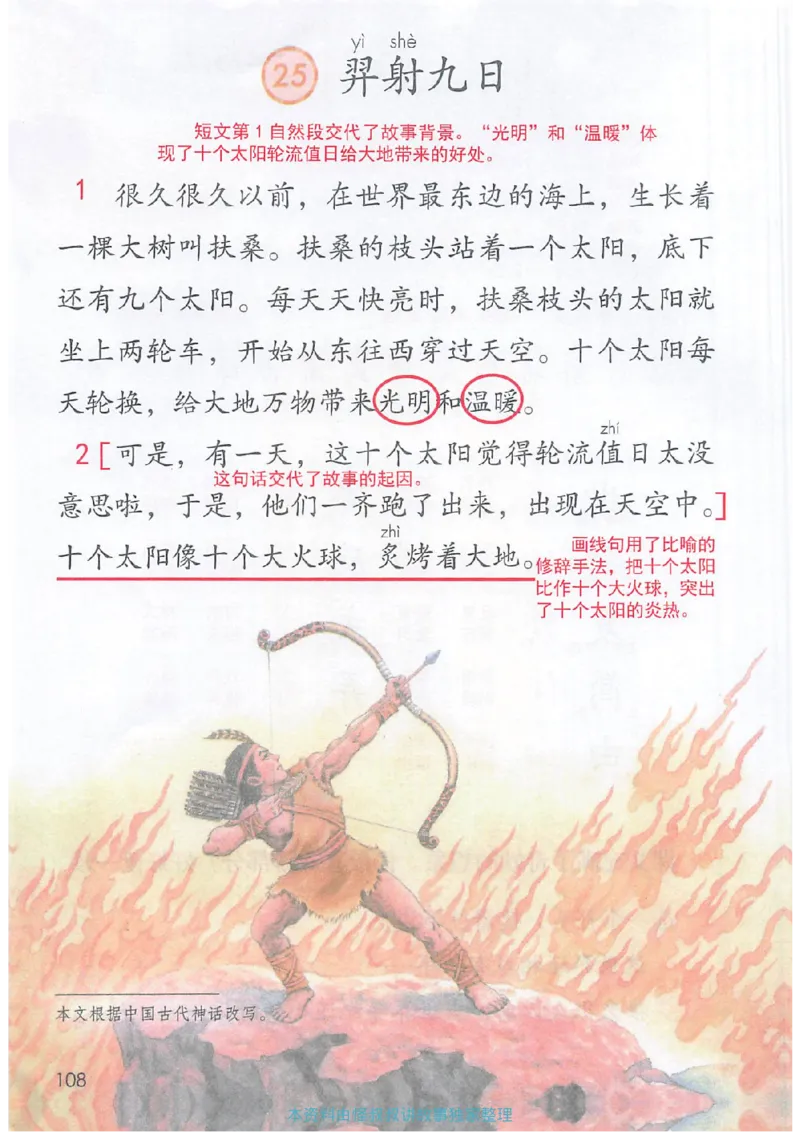 yì shè
25 羿射九日
短文第1自然段交代了故事背景。“光明”和“温暖”体
现了十个太阳轮流值日给大地带来的好处。
1 很久很久以前，在世界最东边的海上，生长着
一棵大树叫扶桑。扶桑的枝头站着一个太阳，底下
还有九个太阳。每天天快亮时，扶桑枝头的太阳就
坐上两轮车，开始从东往西穿过天空。十个太阳每
天轮换，给大地万物带来光明和温暖。
zhí
2 [可是，有一天，这十个太阳觉得轮流值日太没
这句话交代了故事的起因。
意思啦，于是，他们一齐跑了出来，出现在天空中。]
zhì
十个太阳像十个大火球，炙烤着大地。
画线句用了比喻的
修辞手法，把十个太阳
比作十个大火球，突出
了十个太阳的炎热。
本文根据中国古代神话改写。
108
本资料由
故事独家整理